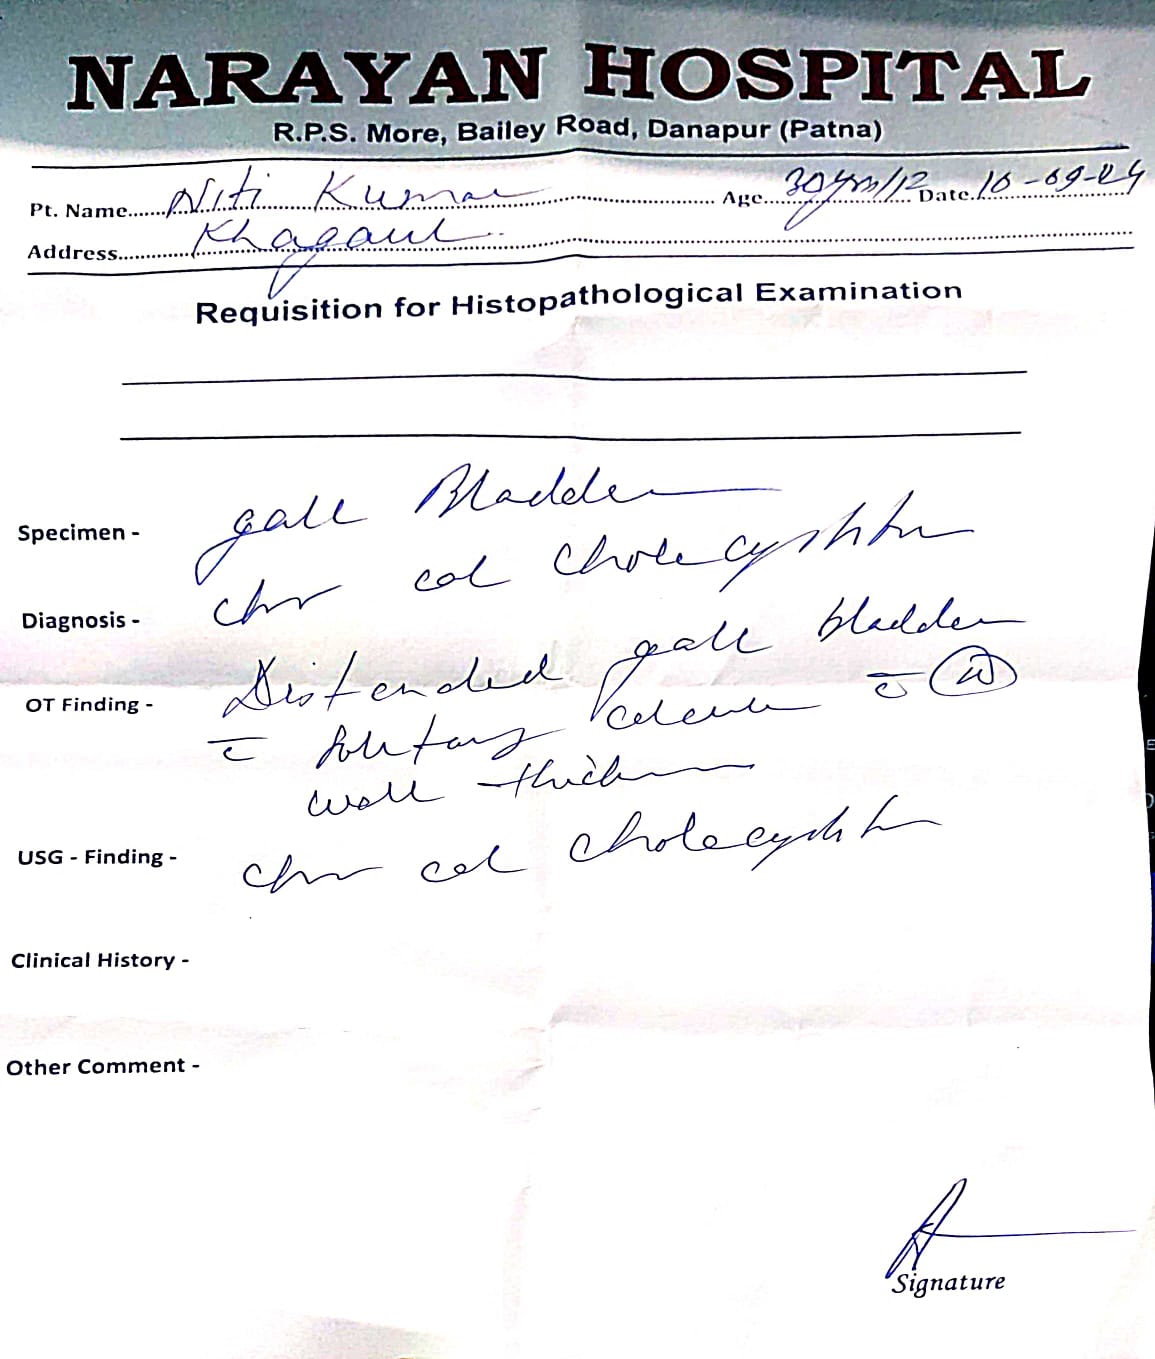 NARAYAN HOSPITAL
R.P.S. More, Bailey Road, Danapur (Patna)
Pt. Name Niti Kumar Age Date 16-09-24
Address Khagaul
Requisition for Histopathological Examination
Specimen - gall Bladder
Diagnosis - chr cal cholecystitis
OT Finding - Distended gall bladder
c̄ solitary calculus c̄ (N)
wall thickness
USG - Finding - chr cal cholecystitis
Clinical History -
Other Comment -
Signature